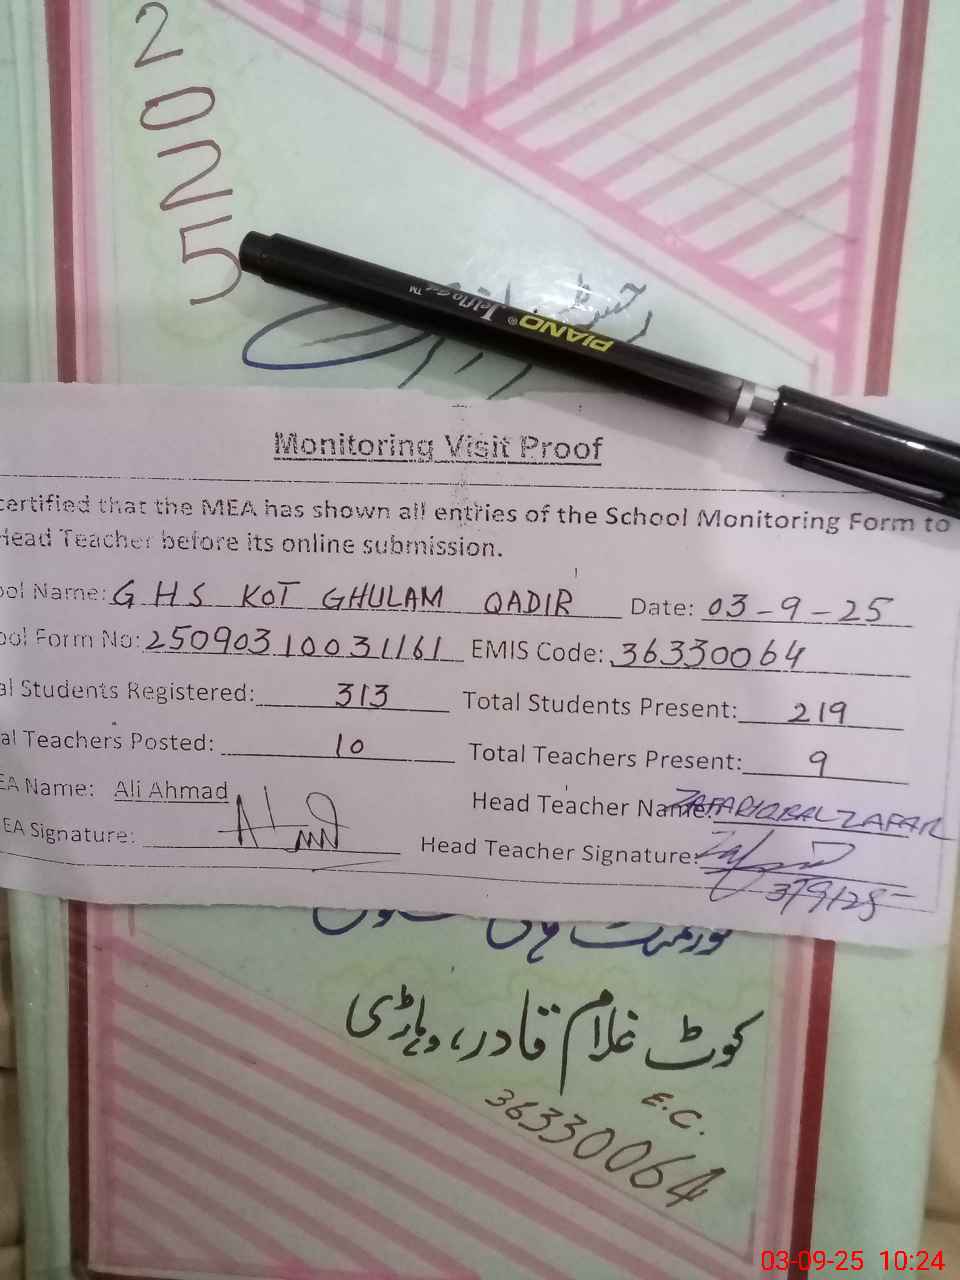 2025
PIANO® Jetflo TM
Monitoring Visit Proof
certified that the MEA has shown all entries of the School Monitoring Form to
Head Teacher before its online submission.
ool Name: G H S KOT GHULAM QADIR Date: 03-9-25
ool Form No: 25090310031161 EMIS Code: 36330064
al Students Registered: 313 Total Students Present: 219
al Teachers Posted: 10 Total Teachers Present: 9
EA Name: Ali Ahmad Head Teacher Name: ZAFAR IQBAL ZAFAR
EA Signature: Head Teacher Signature:
3/9/25
کوٹ غلام قادر، وہاڑی
E.C.
36330064
03-09-25 10:24